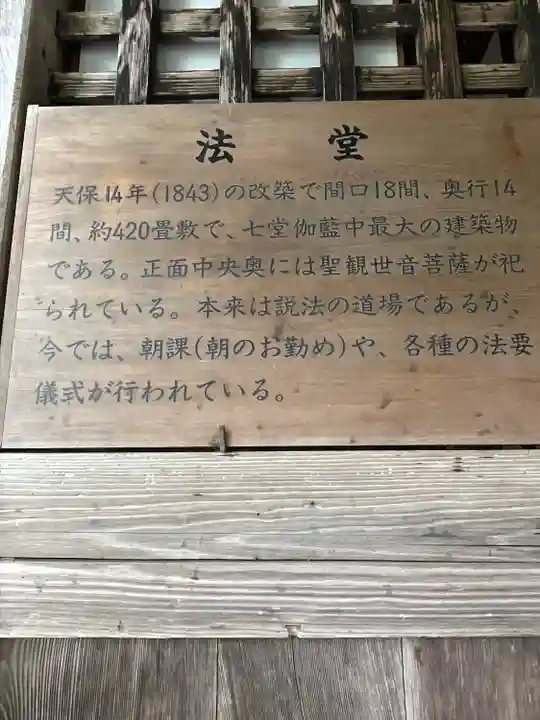 法堂
天保14年(1843)の改築で間口18間、奥行14
間、約420畳敷で、七堂伽藍中最大の建築物
である。正面中央奥には聖観世音菩薩が祀
られている。本来は説法の道場であるが、
今では、朝課(朝のお勤め)や、各種の法要
儀式が行われている。